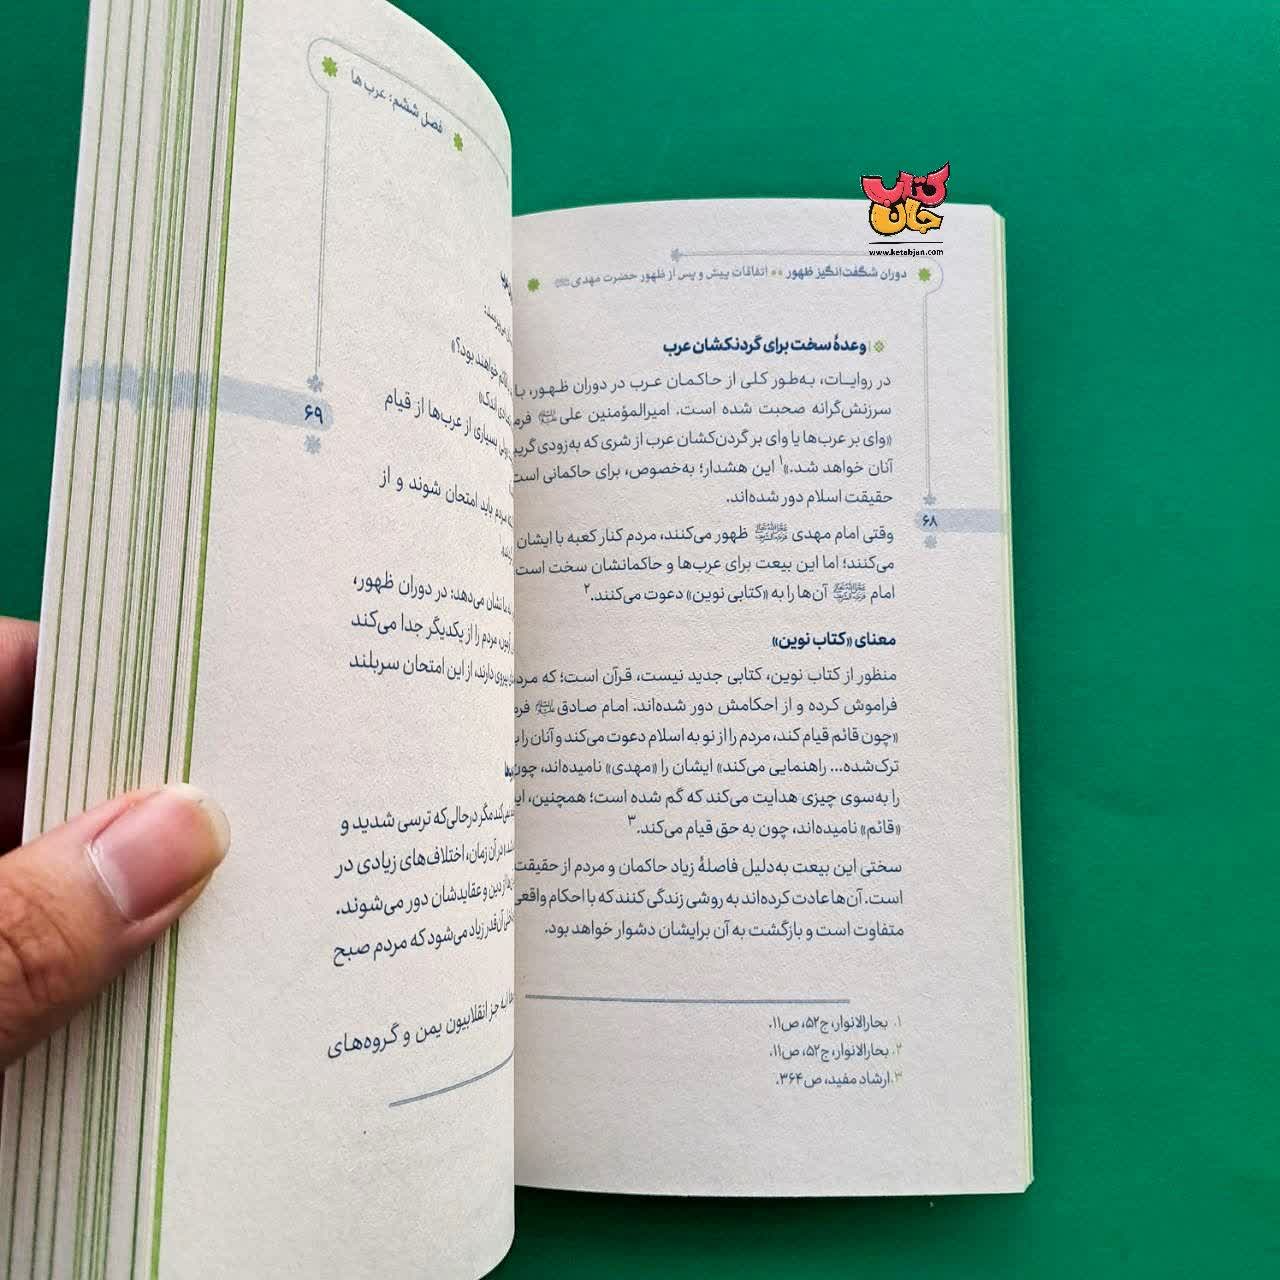 کتاب جان
www.ketabjan.com
دوران شگفت‌انگیز ظهور ** اتفاقات پیش و پس از ظهور حضرت مهدی
وعدهٔ سخت برای گردنکشان عرب
در روایـات، به‌طور کلی از حاکمان عـرب در دوران ظـهـور، بـا
سرزنش‌گرانه صحبت شده است. امیرالمؤمنین علی
«وای بر عرب‌ها یا وای بر گردن‌کشان عرب از شری که به‌زودی
آنان خواهد شد.»۱ این هشدار؛ به‌خصوص، برای حاکمانی است
حقیقت اسلام دور شده‌اند.
وقتی امام مهدی ظهور می‌کنند، مردم کنار کعبه با ایشان
می‌کنند؛ اما این بیعت برای عرب‌ها و حاکمانشان سخت است
امام آن‌ها را به «کتابی نوین» دعوت می‌کنند.۲
معنای «کتاب نوین»
منظور از کتاب نوین، کتابی جدید نیست، قرآن است؛ که
فراموش کرده و از احکامش دور شده‌اند. امام صادق
«چون قائم قیام کند، مردم را از نو به اسلام دعوت می‌کند و آنان را
ترک‌شده... راهنمایی می‌کند» ایشان را «مهدی» نامیده‌اند،
را به‌سوی چیزی هدایت می‌کند که گم شده است؛ همچنین،
«قائم» نامیده‌اند، چون به حق قیام می‌کند.۳
سختی این بیعت به‌دلیل فاصلهٔ زیاد حاکمان و مردم از حقیقت
است. آن‌ها عادت کرده‌اند به روشی زندگی کنند که با احکام واقعی
متفاوت است و بازگشت به آن برایشان دشوار خواهد بود.
۱. بحارالانوار، ج۵۲، ص۱۱.
۲. بحارالانوار، ج۵۲، ص۱۱.
۳. ارشاد مفید، ص۳۶۴.
۶۸
فصل ششم: عرب‌ها
خواهند بود؟»
اندک»
بسیاری از عرب‌ها از قیام
مردم باید امتحان شوند و از
نشان می‌دهد: در دوران ظهور،
مردم را از یکدیگر جدا می‌کند
پیروی دارند، از این امتحان سربلند
مگر درحالی‌که ترسی شدید و
در آن زمان، اختلاف‌های زیادی در
از دین و عقایدشان دور می‌شوند.
آن‌قدر زیاد می‌شود که مردم صبح
به جز انقلابیون یمن و گروه‌های
۶۹